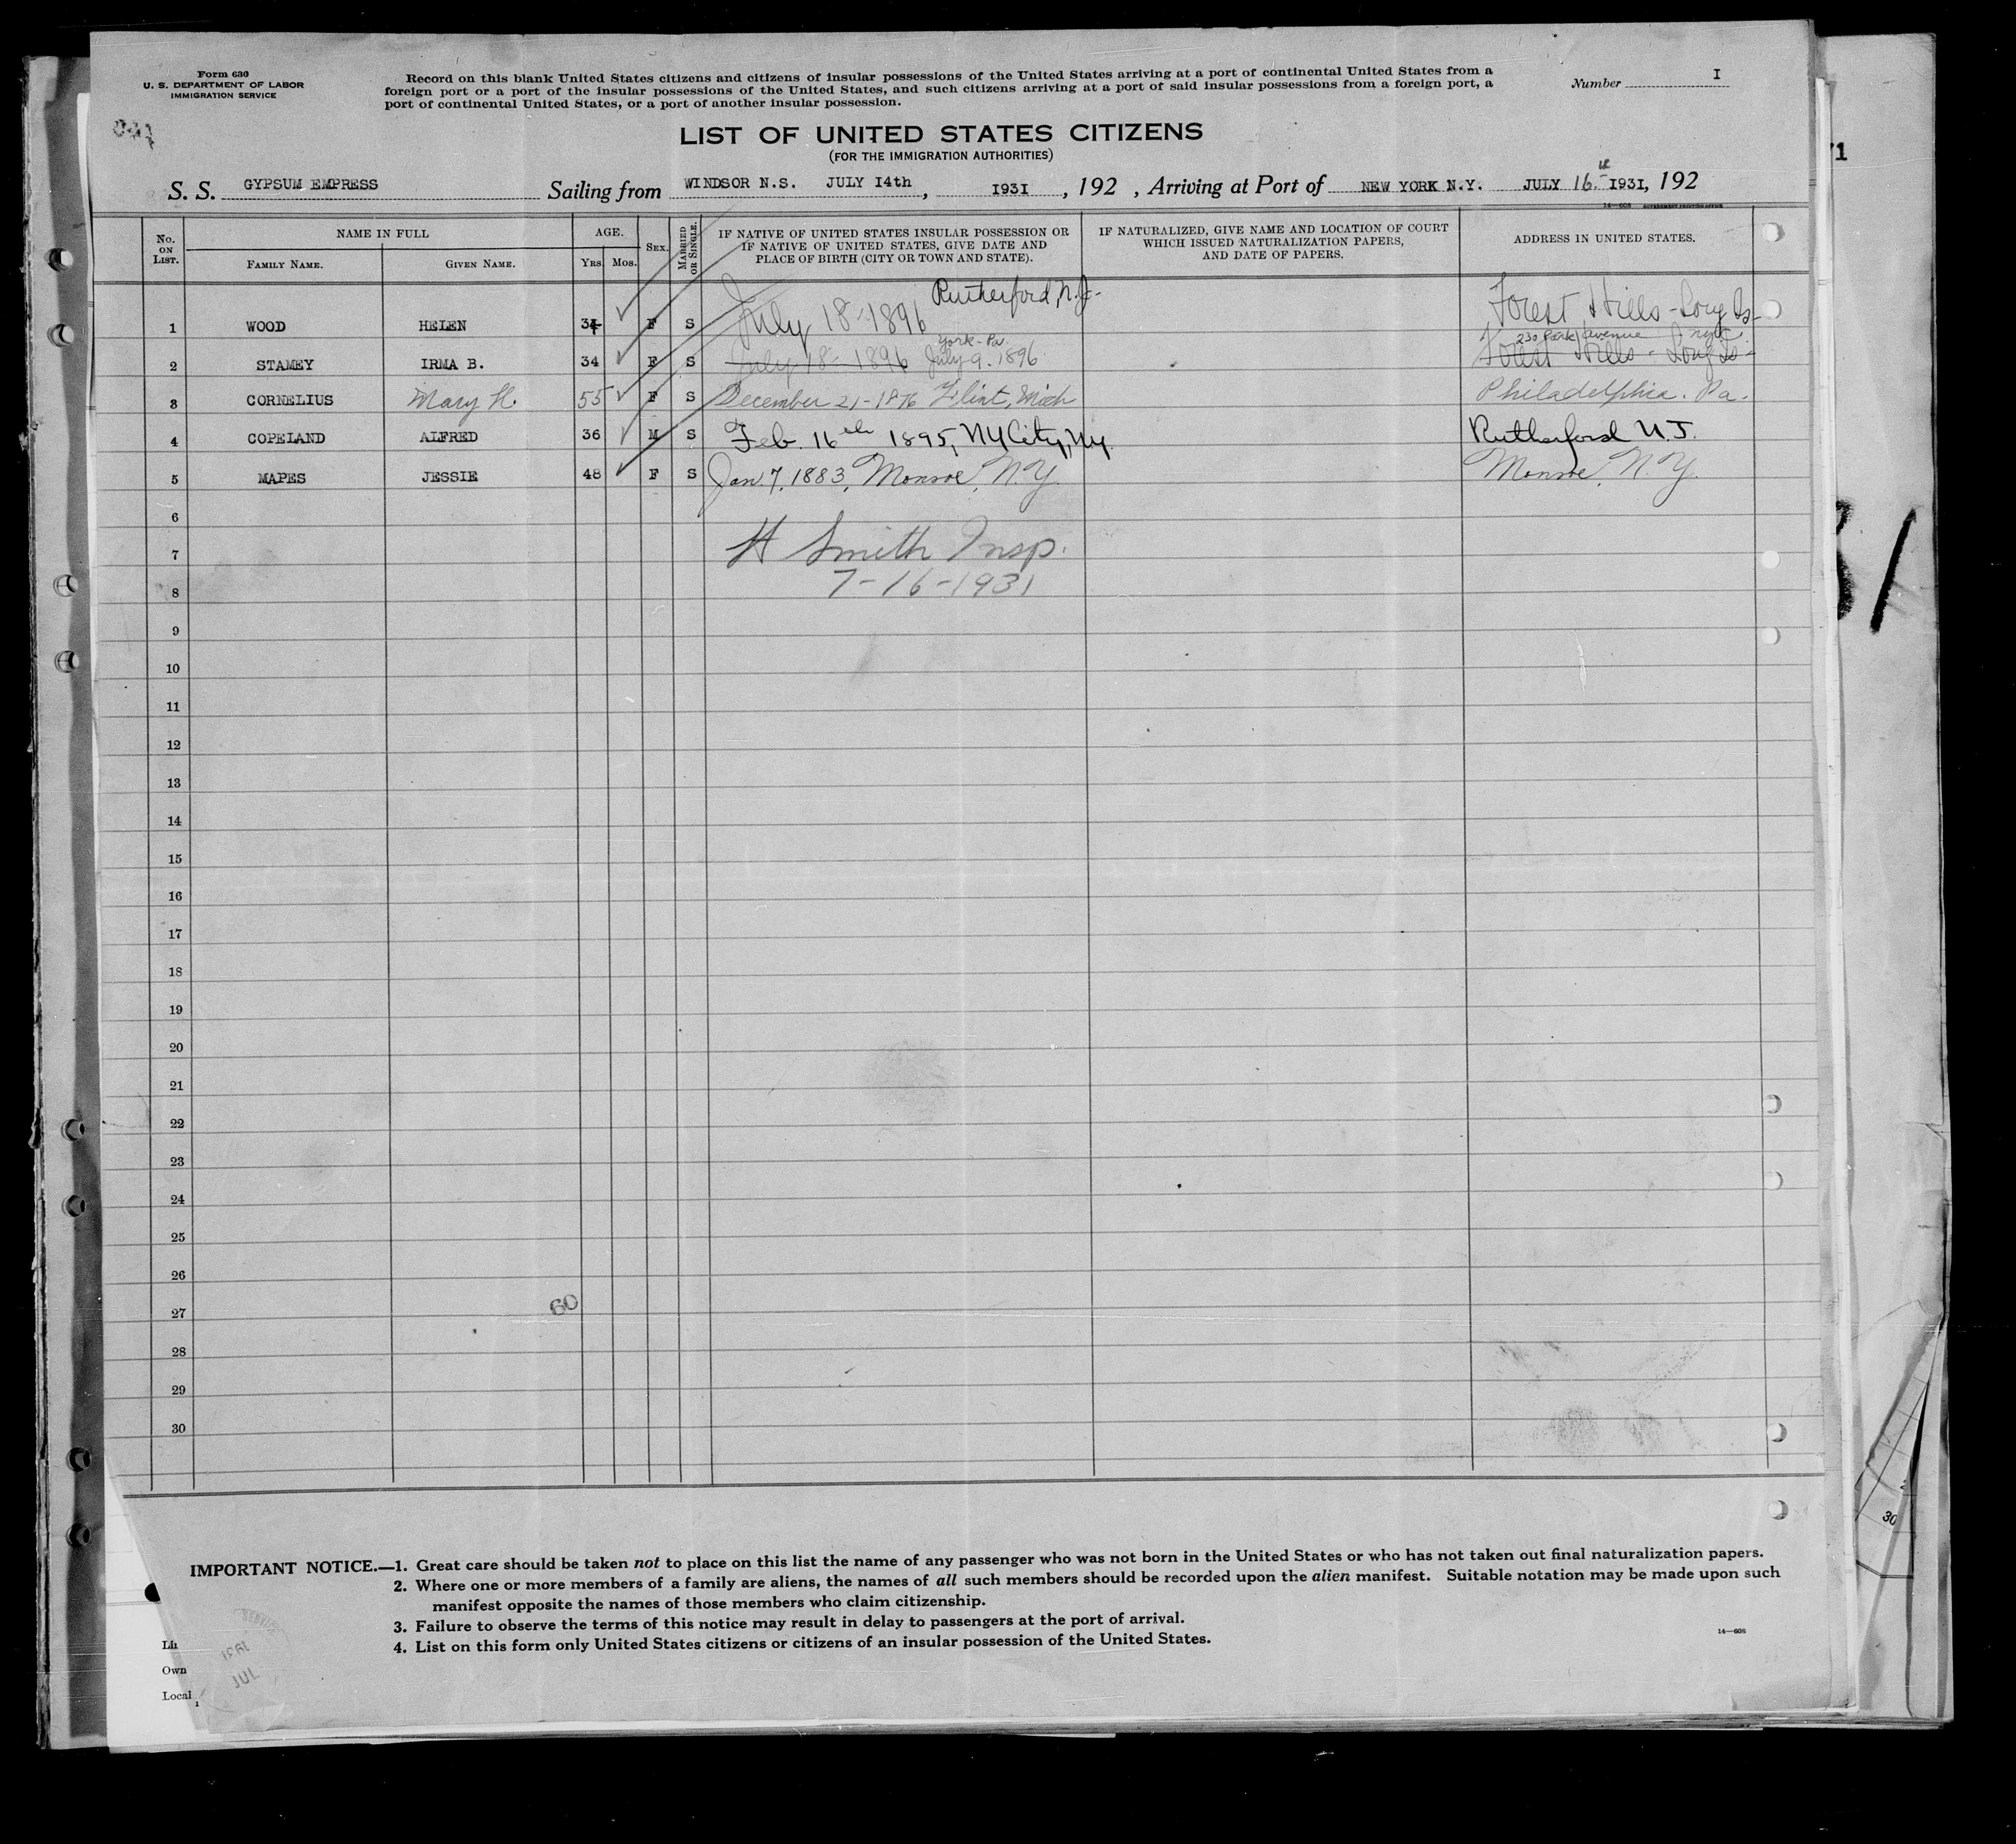 Form 630
U. S. DEPARTMENT OF LABOR
IMMIGRATION SERVICE
Record on this blank United States citizens and citizens of insular possessions of the United States arriving at a port of continental United States from a
foreign port or a port of the insular possessions of the United States, and such citizens arriving at a port of said insular possessions from a foreign port, a
port of continental United States, or a port of another insular possession.
Number I
LIST OF UNITED STATES CITIZENS
(FOR THE IMMIGRATION AUTHORITIES)
S. S. GYPSUM EMPRESS Sailing from WINDSOR N.S. JULY I4th, I93I, 192 , Arriving at Port of NEW YORK N.Y. JULY 16th I93I, 192
14—608 GOVERNMENT PRINTING OFFICE
No. ON LIST. NAME IN FULL AGE. SEX. MARRIED OR SINGLE. IF NATIVE OF UNITED STATES INSULAR POSSESSION OR IF NATIVE OF UNITED STATES, GIVE DATE AND PLACE OF BIRTH (CITY OR TOWN AND STATE). IF NATURALIZED, GIVE NAME AND LOCATION OF COURT WHICH ISSUED NATURALIZATION PAPERS, AND DATE OF PAPERS. ADDRESS IN UNITED STATES.
FAMILY NAME. GIVEN NAME. YRS. MOS.
1 WOOD HELEN 34 F S July 18-1896 Rutherford, N.J. Forest Hills - Long Is-
York - Pa. 230 Park Avenue NYC
2 STAMEY IRMA B. 34 F S July 18 - 1896 July 9. 1896 Forest Hills - Long Is-
3 CORNELIUS Mary H. 55 F S December 21-1876 Flint, Mich Philadelphia. Pa.
4 COPELAND ALFRED 36 M S Feb. 16th 1895, NY City, NY. Rutherford N.J.
5 MAPES JESSIE 48 F S Jan 7, 1883, Monroe, N.Y. Monroe, N.Y.
6
7 H Smith Insp.
8 7-16-1931
9
10
11
12
13
14
15
16
17
18
19
20
21
22
23
24
25
26
27 60
28
29
30
IMPORTANT NOTICE.—1. Great care should be taken not to place on this list the name of any passenger who was not born in the United States or who has not taken out final naturalization papers.
2. Where one or more members of a family are aliens, the names of all such members should be recorded upon the alien manifest. Suitable notation may be made upon such
manifest opposite the names of those members who claim citizenship.
3. Failure to observe the terms of this notice may result in delay to passengers at the port of arrival.
4. List on this form only United States citizens or citizens of an insular possession of the United States.
14—608
Own
Local
30